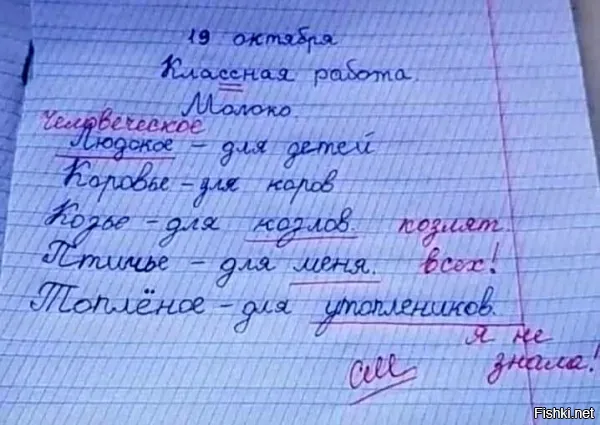 19 октября
Классная работа.
Молоко.
Человеческое
Людское - для детей
Коровье - для коров
Козье - для козлов. козлят.
Птичье - для меня. всех!
Топлёное - для утоплеников.
я не
знала!
см
Fishki.net